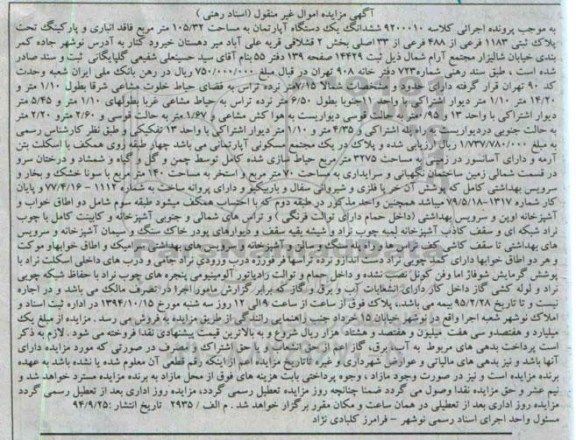 آگهی مزایده اموال غیر منقول (اسناد رهنی)
به موجب پرونده اجرائی کلاسه ۹۲۰۰۰۱۰ ششدانگ یک دستگاه آپارتمان به مساحت ۱۰۵/۳۲ متر مربع فاقد انباری و پارکینگ تحت
پلاک ثبتی ۱۱۸۳ فرعی از ۴۸۸ فرعی از ۳۳ اصلی بخش ۲ قشلاقی قریه علی آباد میر دهستان خیرود کنار به آدرس نوشهر جاده کمر
بندی خیابان شالیزار مجتمع آرام شمال ذیل ثبت ۱۴۴۲۹ صفحه ۱۳۹ دفتر ۵۵ بنام آقای سید حسینعلی شفیعی گلپایگانی ثبت و سند صادر
شده است ، طبق سند رهنی شماره ۷۲۳ دفتر خانه ۹۰۸ تهران در قبال مبلغ ۷۵۰/۰۰۰/۰۰۰ ریال در رهن بانک ملی ایران شعبه وحدت
کد ۹۰ تهران قرار گرفته دارای حدود و مشخصات شمالا ۷/۱۵ نرده تراس به فضای حیاط خلوت مشاعی شرقا بطول ۱/۱۰ متر و
۱۴/۲۰ متر ۱/۱۰ متر دیوار اشتراکی با واحد ۱۱ جنوبا بطول ۶/۵۰ متر نرده تراس به حیاط مشاعی غربا بطولهای ۱/۱۰ متر و ۵/۴۵ متر
دیوار اشتراکی با واحد ۱۳ و ۰/۹۵ متر به حالت قوسی دیواریست به هوا کش مشاعی و ۱/۶۷ متر به حالت قوسی و ۲/۶۰ مترو ۲/۲۰ متر
به حالت جنوبی دردیواریست به راه پله اشتراکی و ۴/۳۵ متر و ۱/۱۰ متر دیوار اشتراکی با واحد ۱۳ تفکیکی و طبق نظر کارشناس رسمی
به مبلغ ۱/۷۳۷/۷۸۰/۰۰۰ ریال ارزیابی شده و پلاک در یک مجتمع مسکونی آپارتمانی می باشد چهار طبقه روی همکف با اسکلت بتن
آرمه و دارای آسانسور در زمینی به مساحت ۳۲۷۵ متر مربع حیاط سازی شده کامل توسط چمن و گل و گیاه و شمشاد و درختان سرو
در قسمت شمالی زمین ساختمان نگهبانی و سرایداری به مساحت ۷۰ متر مربع و استخر به مساحت ۱۴۰ متر مربع با سونا خشک و بخار و
سرویس بهداشتی کامل که پوشش آن خر پا فلزی و شیروانی سفال و باربیکیو و دارای پروانه ساخت به شماره ۱۱۱۲ – ۷۷/۴/۱۶ و پایان
کار شماره ۱۳۱۷–۷۹/۵/۱۸ میباشد همچنین واحد مذکور در طبقه دوم که با احتساب همکف میشود طبقه سوم شامل دو اطاق خواب و
آشپزخانه اوپن و سرویس بهداشتی (داخل حمام دارای توالت فرنگی ) و تراس های شمالی و جنوبی آشپزخانه و کابینت کامل با چوب
نراد شبکه ای و سقف کاذب آشپزخانه لمبه چوب نراد و شیشه بقیه سقف و دیوارهای پودر خاک سنگ و سیمان آشپزخانه و سرویس
های بهداشتی تا سقف کاشی
و هر دو اطاق خوابها دارای کمد
پوشش گرمایش شوفاژ اما وفن کوئل نصب نشده و داخل حمام و توالت رادیاتور آلومینیومی پنجره های چوب نراد با حفاظ شبکه چوبی
نراد و لوله کشی گاز داخل کار دارای انشعابات آب و برق و گاز که برابر گزارش مامور اجرا در تصرف مالک می باشد و در اجاره
نیست و تا تاریخ ۹۵/۲/۲۸ بیمه می باشد ، پلاک فوق از ساعت از ساعت ۹ الی ۱۲ روز سه شنبه مورخ ۱۳۹۴/۱۰/۱۵ در اداره ثبت اسناد و
املاک نوشهر شعبه اجرا واقع در نوشهر خیابان ۱۵ خرداد جنب راهنمایی رانندگی از طریق مزایده به فروش می رسد . مزایده از مبلغ یک
میلیارد و هفتصدو سی هفت میلیون و هفتصد و هشتاد هزار ریال شروع و به بالاترین قیمت پیشنهادی نقدا فروخته می شود . لازم به ذکر
است پرداخت بدهی های مربوط به آب ، برق ، گاز اعم از حق انشعاب و یا حق اشتراک و مصرف در صورتی که مورد مزایده دارای
آنها باشد و نیز بدهی های مالیاتی و عوارض شهرداری و غیره تا تاریخ مزایده اعم از اینکه رقم قطعی آن معلوم شده یا نشده باشد به عهده
برنده مزایده است و نیز در صورت وجود مازاد ، وجوه پرداختی بابت هزینه های فوق از محل مازاد به برنده مزایده مسترد خواهد شد و
نیم عشر و حق مزایده نقدا وصول می گردد ضمنا چنانچه روز مزایده تعطیل رسمی گردد، مزایده روز اداری بعد از تعطیل رسمی گردد
مزایده روز اداری بعد از تعطیلی در همان ساعت و مکان مقرر برگزار خواهد شد . م الف / ۲۹۳۵ تاریخ انتشار :۹۴/۹/۲۵
مسئول واحد اجرای اسناد رسمی نوشهر – فرامرز کلبادی نژاد